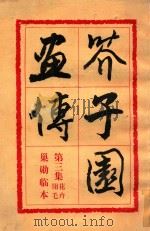 芥子園
畫傳
第三集 花卉
翎毛
巢勋临本